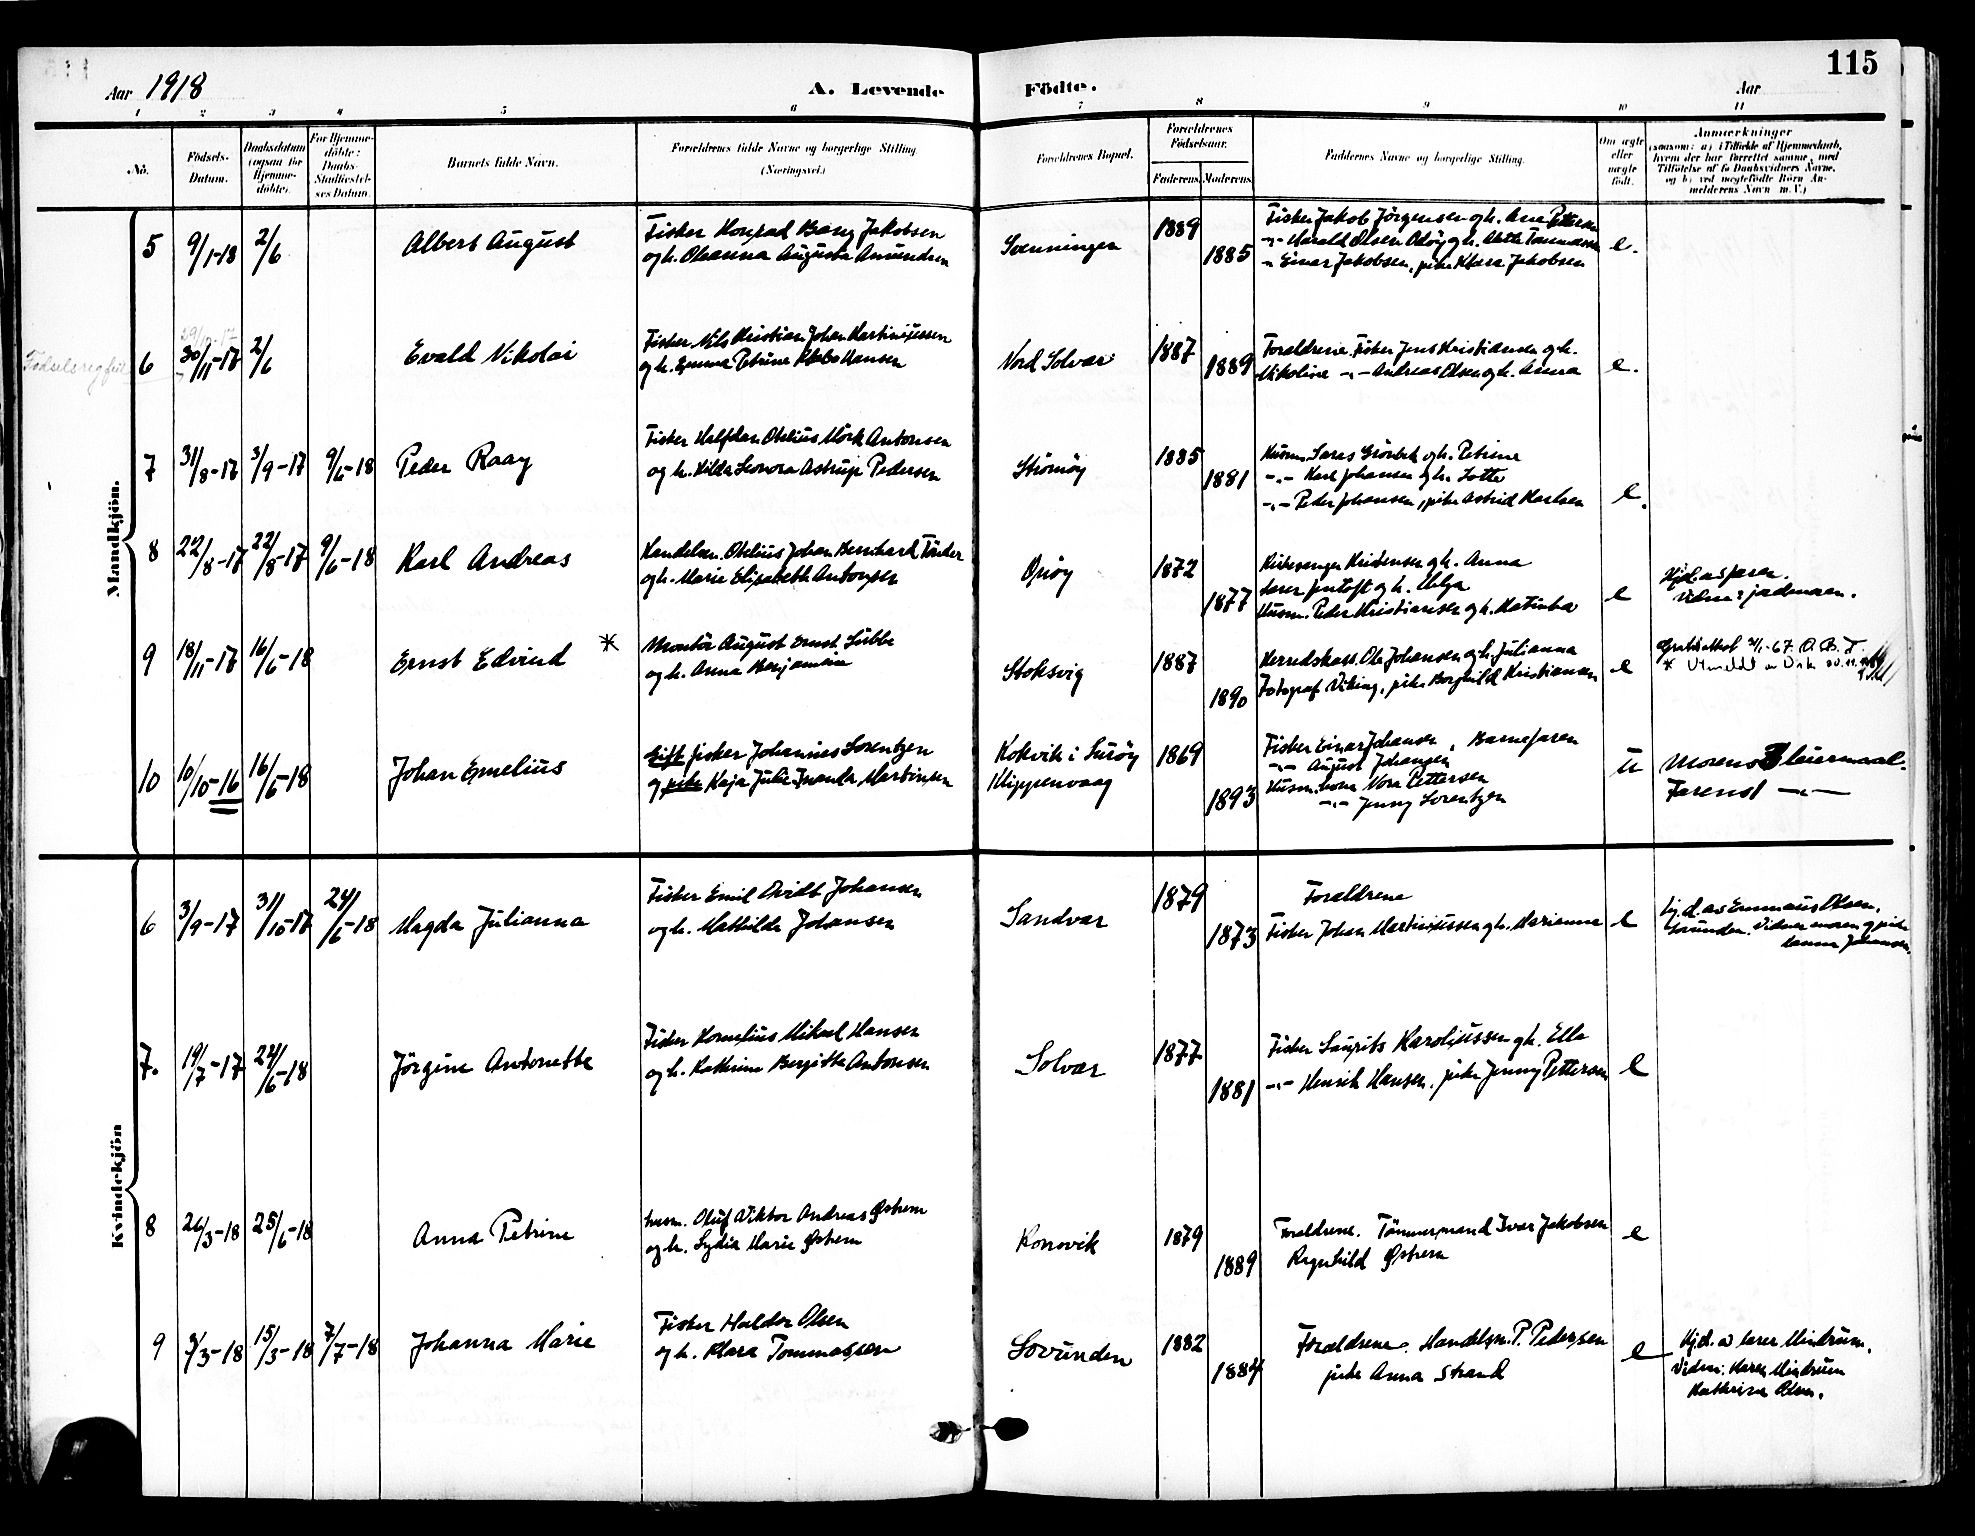 Aar 1918
A. Levende Födte.
115
Aar
1 2 3 4 5 6 7 8 9 10 11
No.
Födsels-Datum.
Daabsdatum (ogsaa for Hjemmedöbte).
For Hjemmedöbte: Daabs-Stadfæstelses Datum.
Barnets fulde Navn.
Forældrenes fulde Navne og borgerlige Stilling.
(Næringsvei.)
Forældrenes Bopæl.
Forældrenes Födselsaar.
Faderens. Moderens.
Faddernes Navne og borgerlige Stilling.
Om ægte eller uægte födt.
Anmærkninger
(saasom: a) i Tilfælde af Hjemmedaab, hvem der har forrettet samme, med Tilföielse af to Daabsvidners Navne, og b) ved uægtefödte Börn Anmelderens Navn m. V.)
Mandkjön.
5 9/1-18 2/6 Albert August
Fisker Konrad Bang Jakobsen
og h. Ohanna Augusta Amundsen
Sænningen 1889 1885
Fisker Jakob Jörgensen og h. Ane Pettersen
-"- Harald Olsen Odöy og h. Akette Tommassen
-"- Einar Jakobsen, pike Klara Jakobsen
e.
29/11-17
Födselsreg feil
6 30/11-17 2/6 Evald Nikolai
Fisker Nils Kristian Johan Martinussen
og h. Emma Petrine Hansen
Nord Solvær 1887 1889
Forældrene, Fisker Jens Kristiansen og h.
Nikoline -"- Andreas Olsen og h. Anna
e.
7 31/8-17 3/9-17 9/6-18 Peder Roay
Fisker Halfdan Otelius Mörk Antonsen
og h. Hilda Leonora Astrup Pedersen
Strömöy 1885 1881
Husm. Lars Grönbek og h. Petrine
-"- Karl Johansen og h. Lotte
-"- Peder Johansen, pike Astrid Karlsen
e.
8 22/8-17 22/8-17 9/6-18 Karl Andreas
Handelsm. Otelius Johan Bernhard
og h. Marie Elisabeth Antonsen
Onöy 1872 1877
Kirkesanger Kristensen og h. Anna
Lærer Jentoft og h. Helga
Husm. Peder Kristiansen og h. Katinka
e
Hjd. av faren.
9 18/11-17 16/6-18 Ernst Edvind *
Montör August Ernst Lübbe
og h. Anna Benjamine
Stoksvig 1887 1890
Herredskass. Ole Johansen og h. Julianna
Fotograf Viking, pike Borghild Kristiansen
e
* Utmeldt av
10 10/10-16 16/6-18 Johan Emelius
Gift fisker Johannes Lorentzen
og pike Kaja Julie Jnanda Martinsen
Kokvik i Luröy
Klippenvaag
1869 1893
Fisker Einar Johansen, Barnefaren
-"- August Johansen
Husm. kona Nora Pettersen
-"- Jenny Lorentzen
U
Morens 3 leiermaal.
Farens 1 -"-
Kvindekjön
6 3/9-17 31/10-17 24/6-18 Magda Julianna
Fisker Emil Johansen
og h. Mathilde Johansen
Sandvær 1879 1873
Forældrene
Fisker Johan Martinussen og h. Marianne
e
Hj.d. av Emmaus Olsen,
Lovunden. Vidner moren og pike
Johansen.
7. 19/7-17 24/6-18 Jörgine Antonette
Fisker Kornelius Mikael Hansen
og h. Kathrine Bergitte Antonsen
Solvær 1877 1881
Fisker Laurits Karoliussen og h. Ella
-"- Henrik Hansen, pike Jenny Pettersen
e
8 26/3-18 25/6-18 Anna Petrine
husm. Oluf Viktor Andreas Östrem
og h. Lydia Marie Östrem
Konsvik 1879 1889
Forældrene. Tömmermand Ivar Jakobsen
Ragnhild Östrem
e
9 3/3-18 15/3-18 7/7-18 Johanna Marie
Fisker Haldor Olsen
og h. Klara Tommassen
Lovunden 1882 1884
Forældrene. Handelsm. P. Pedersen
pike Anna Strand
e
Hj.d. av lærer Mindrum.
Vidn: Karen Mindrum
Kathrine Olsen.